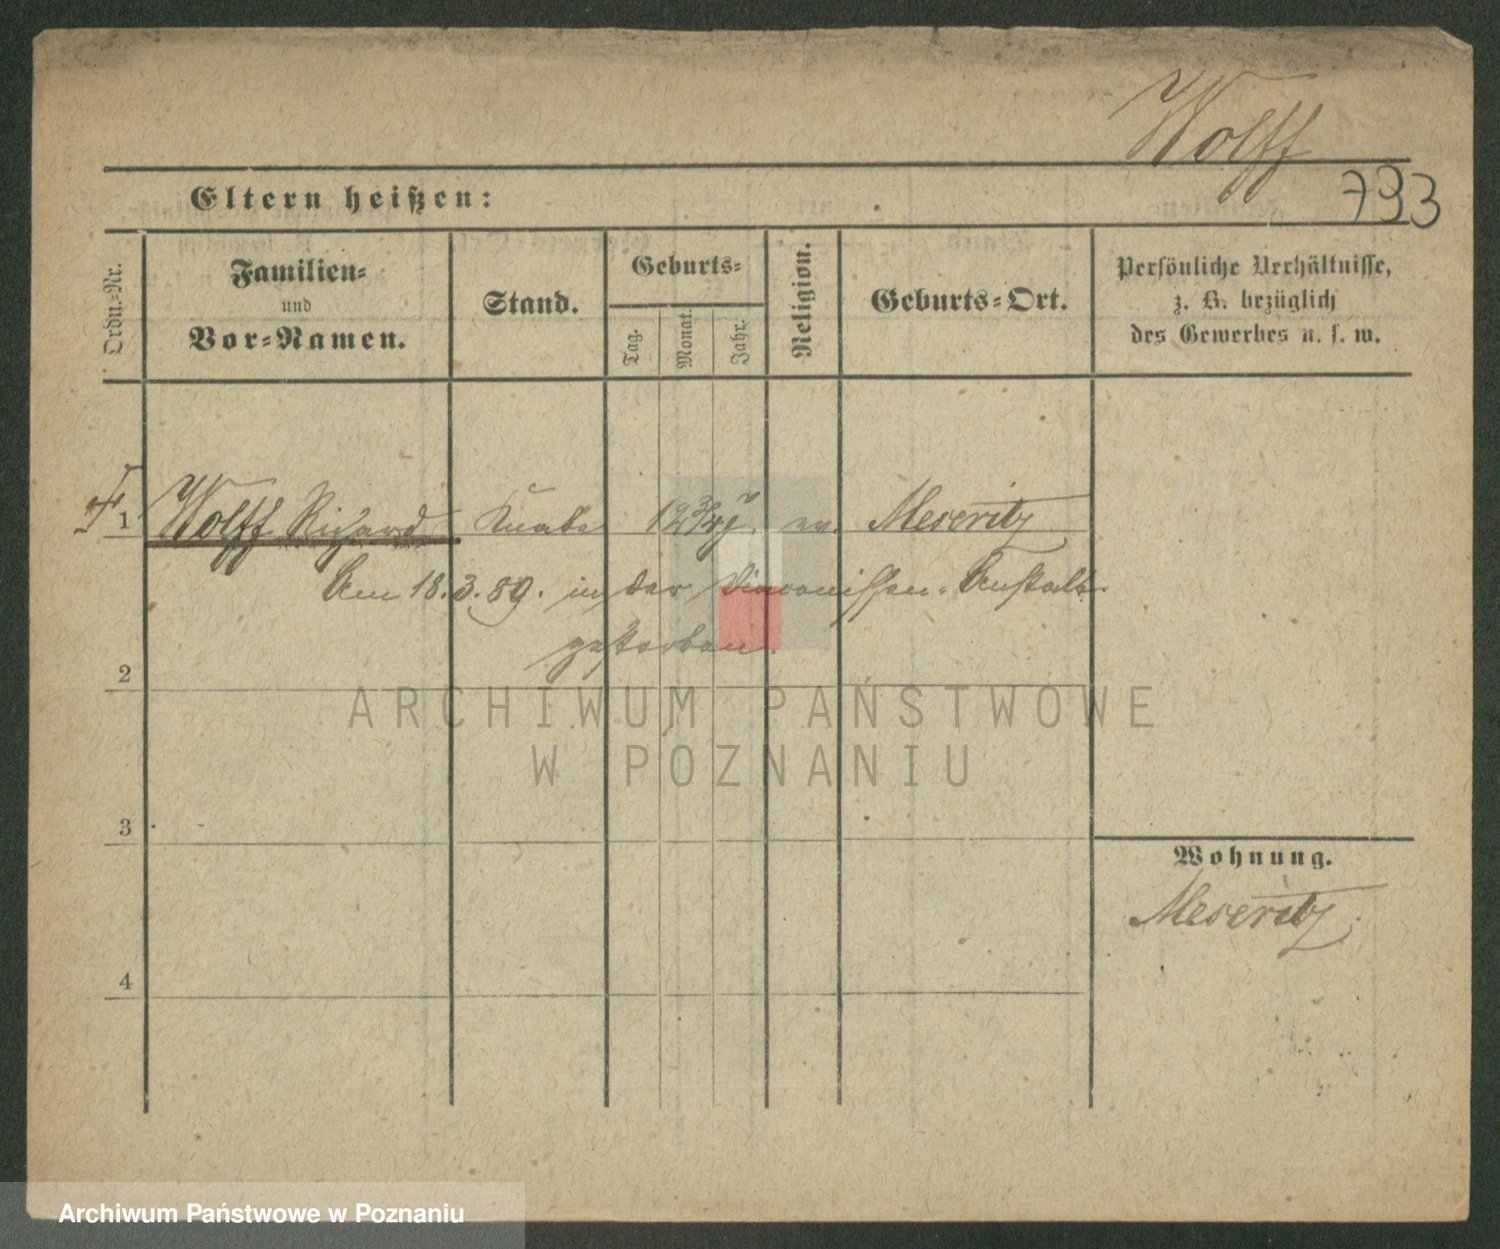 Wolff
Eltern heißen:
793
Ordn.-Nr.
Familien-
und
Vor-Namen.
Stand.
Geburts-
Tag.
Monat.
Jahr.
Religion.
Geburts-Ort.
Persönliche Verhältnisse,
z. B. bezüglich
des Gewerbes u. s. w.
1 Wolff Rizard Knabe 12 3/4 J. ev. Meseritz
Am 18.3.89. in der Diaconissen-Anstalt
gestorben.
2
ARCHIWUM PAŃSTWOWE
W POZNANIU
3
Wohnung.
Meseritz.
4
Archiwum Państwowe w Poznaniu